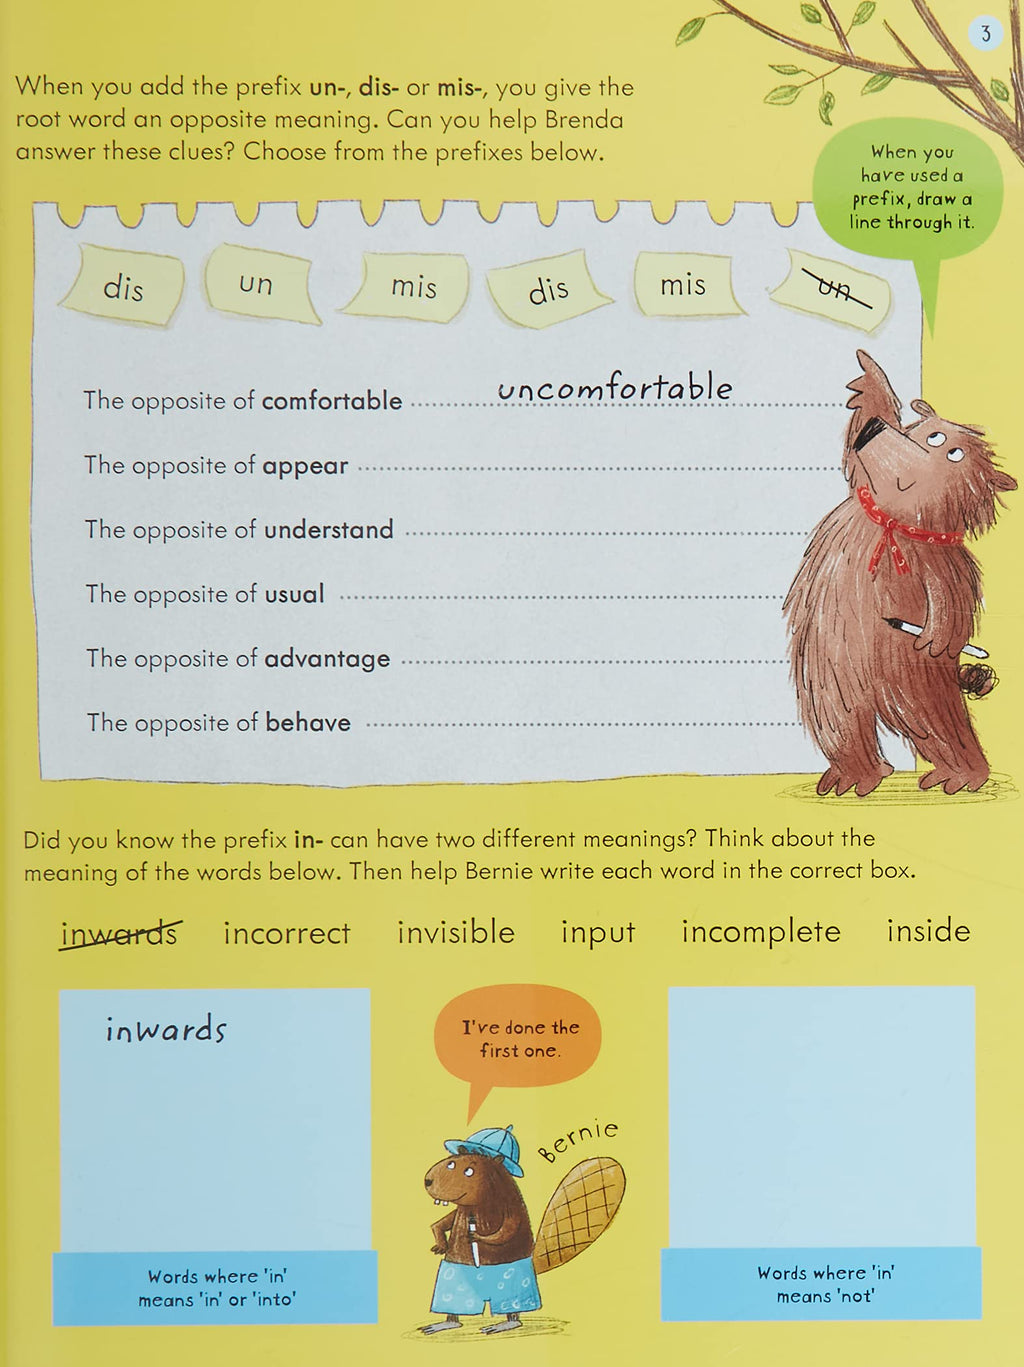 3
When you add the prefix un-, dis- or mis-, you give the
root word an opposite meaning. Can you help Brenda
answer these clues? Choose from the prefixes below.
When you
have used a
prefix, draw a
line through it.
dis un mis dis mis un
The opposite of comfortable ........ uncomfortable ........
The opposite of appear ........
The opposite of understand ........
The opposite of usual ........
The opposite of advantage ........
The opposite of behave ........
Did you know the prefix in- can have two different meanings? Think about the
meaning of the words below. Then help Bernie write each word in the correct box.
inwards incorrect invisible input incomplete inside
inwards
I've done the
first one.
Bernie
Words where 'in'
means 'in' or 'into'
Words where 'in'
means 'not'